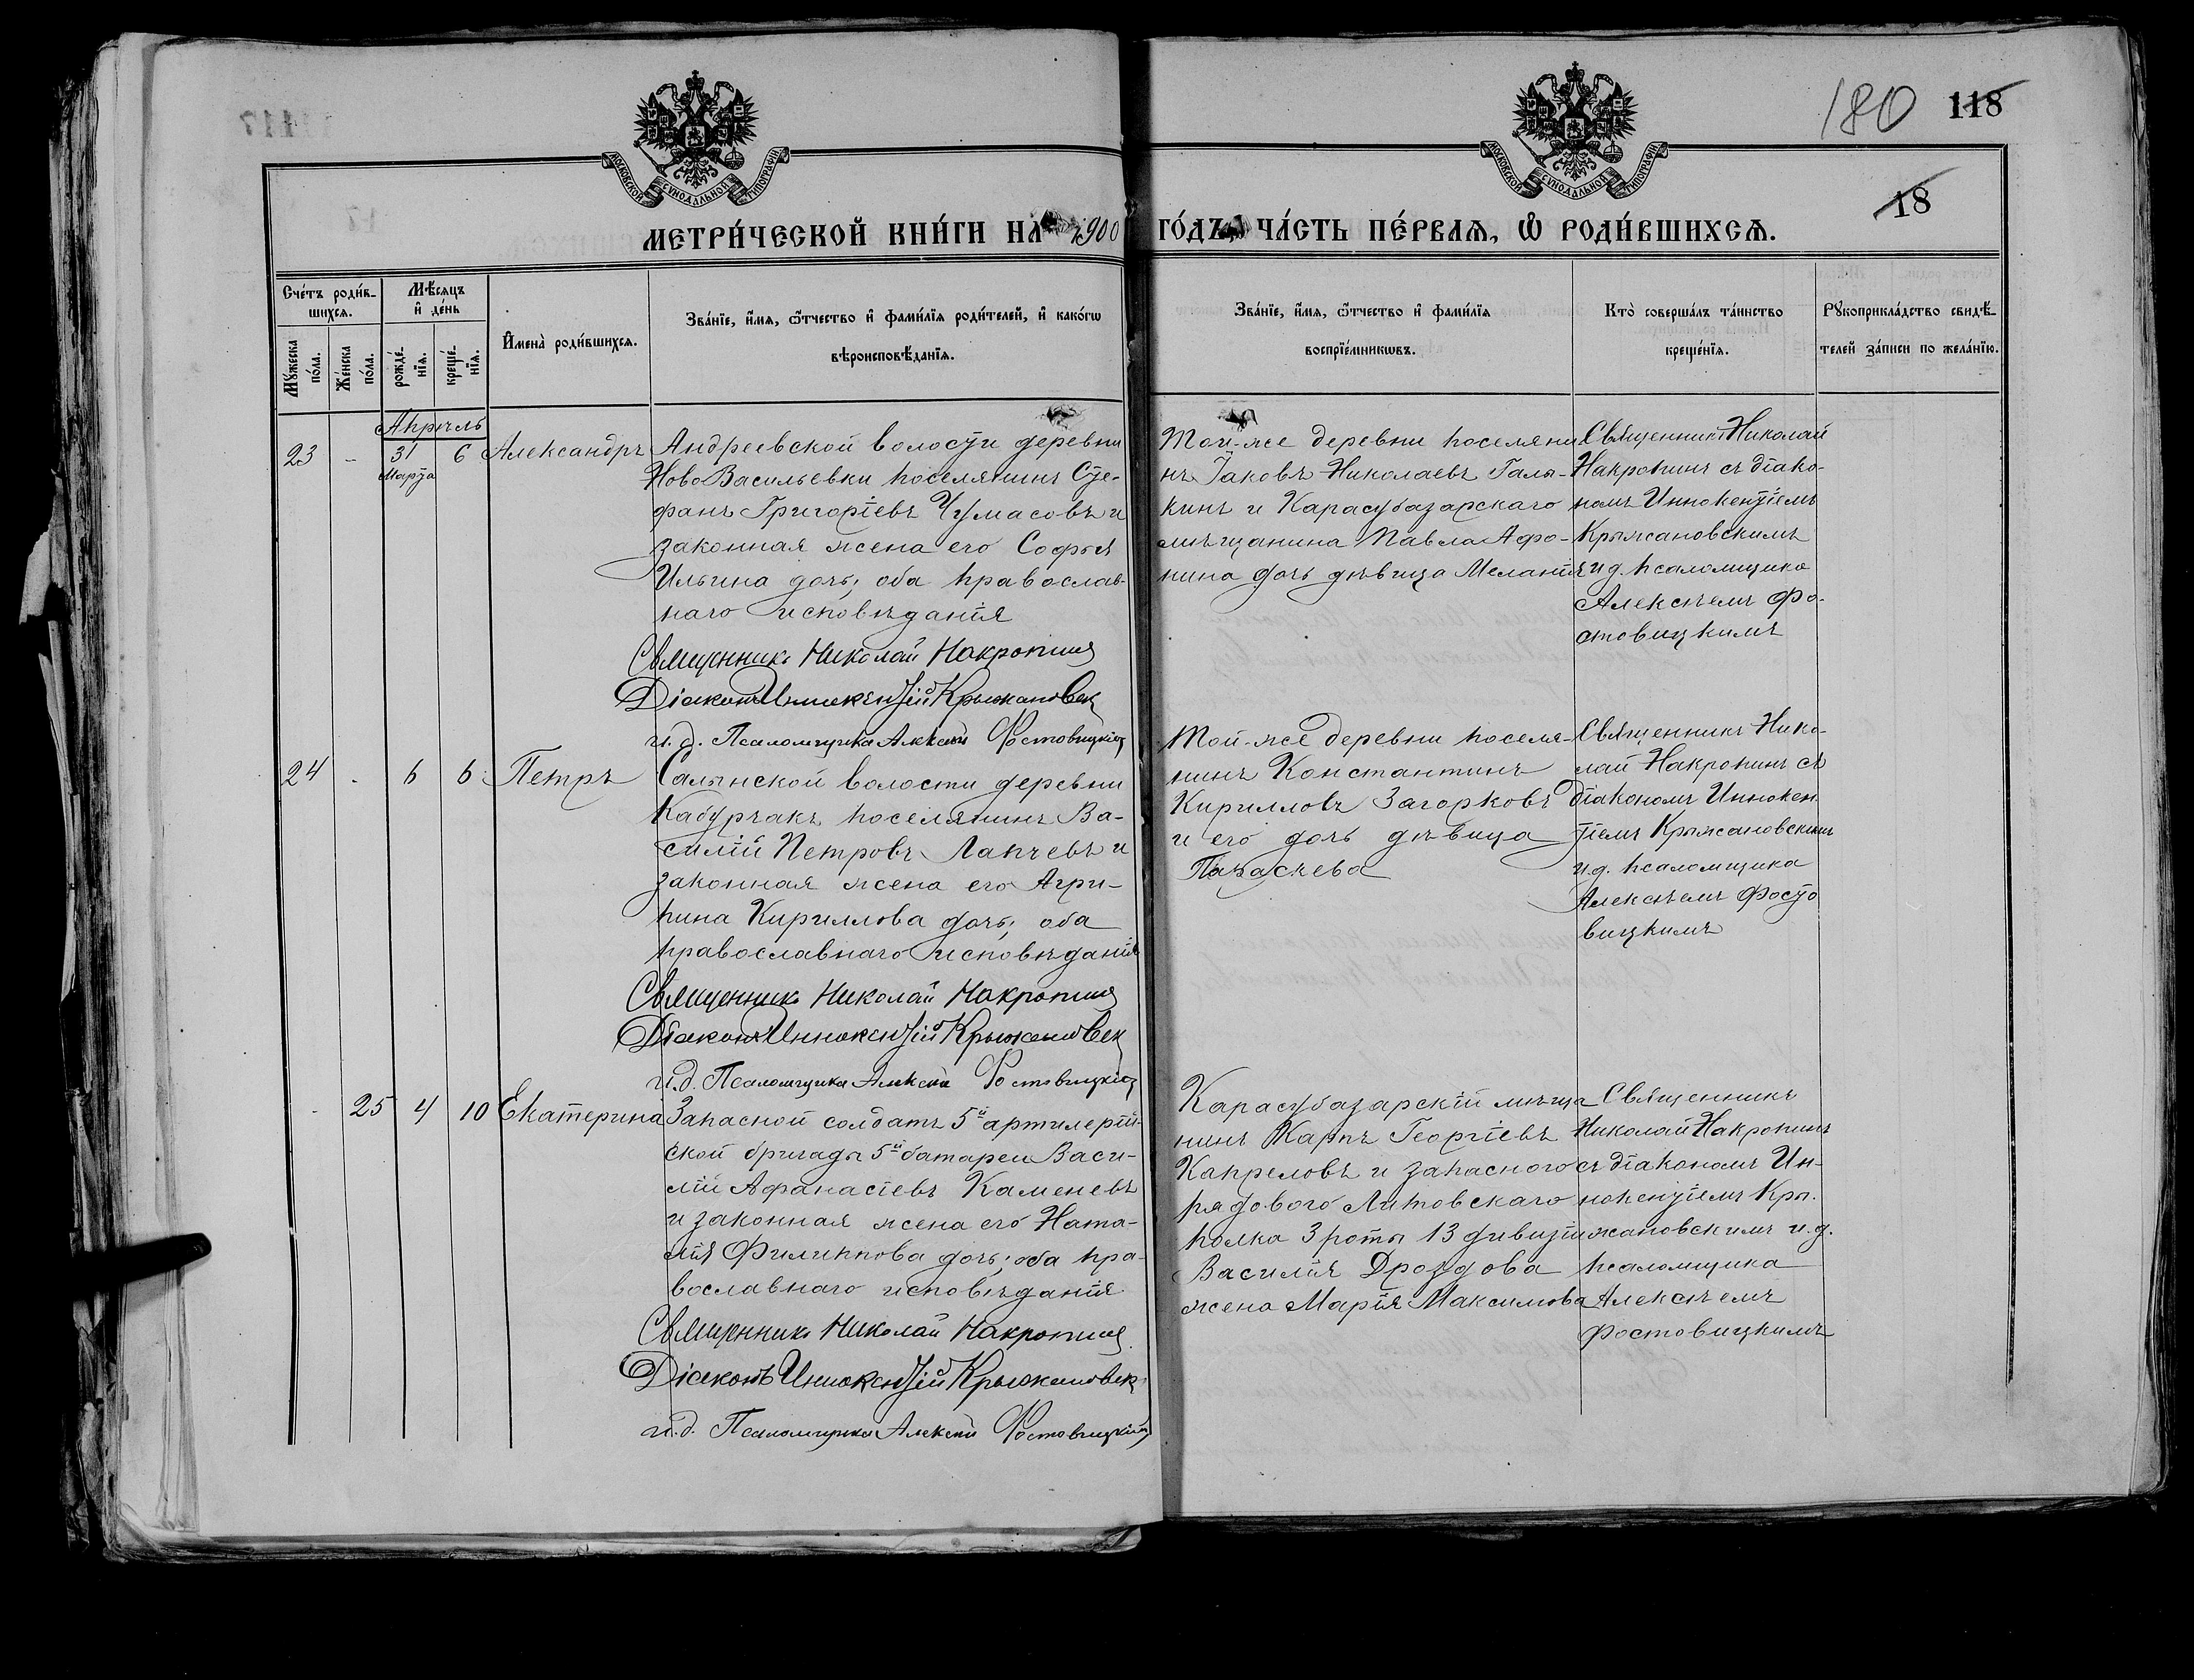 180 118
18
МОСКОВСКОЙ СУНОДАЛЬНОЙ ТИПОГРАФІИ
МОСКОВСКОЙ СУНОДАЛЬНОЙ ТИПОГРАФІИ
МЕТРИ́ЧЕСКОЙ КНИ́ГИ НА 1900 ГО́ДЪ, ЧА́СТЬ ПЕ́РВАѦ, Ѽ РОДИ́ВШИХСѦ.
Сче́тъ роди́в-
шихсѧ.
Мꙋ́жеска по́ла.
Же́нска по́ла.
Мѣ́сѧцъ и҆ де́нь
рожде́-нїѧ.
креще́-нїѧ.
И҆мена̀ роди́вшихсѧ.
Зва́нїе, и҆́мѧ, ѻ҆́тчество и҆ фами́лїѧ роди́телей, и҆ како́гѡ
вѣроисповѣ́данїѧ.
Зва́нїе, и҆́мѧ, ѻ҆́тчество и҆ фами́лїѧ
воспрїе́мникѡвъ.
Кто̀ соверша́лъ та́инство
креще́нїѧ.
Рꙋкоприкла́дство свидѣ́-
телей за́писи по жела́нїю.
Апрѣль
23 - 31 Марта 6 Александръ
Андреевской волости деревни
Ново Васильевки поселянинъ Сте-
фанъ Григоріевъ Чумасовъ и
законная жена его Софья
Ильина дочь; оба православ-
наго исповѣданія
Священникъ Николай Накропинъ
Діаконъ Иннокентій Крыжановск
и.д. Псаломщика Алексѣй Фостовицкій
Той-же деревни поселяни
нъ Іаковъ Николаевъ Галы-
кинъ и Карасубазарскаго
мѣщанина Павла Афо-
нина дочь дѣвица Меланія
Священникъ Николай
Накропинъ съ діако-
номъ Иннокентіемъ
Крыжановскимъ
и д. псаломщика
Алексѣемъ Фо-
стовицкимъ
24 - 6 6 Петръ
Салынской волости деревни
Кабурчакъ поселянинъ Ва-
силій Петровъ Лапчевъ и
законная жена его Агри-
пина Кириллова дочь; оба
православнаго исповѣданія
Священникъ Николай Накропинъ
Діаконъ Иннокентій Крыжановск
и.д. Псаломщика Алексѣй Фостовицкій
Той-же деревни поселя-
нинъ Константинъ
Кирилловъ Загорковъ
и его дочь дѣвица
Параскева
Священникъ Нико-
лай Накропинъ съ
діакономъ Иннокен
тіемъ Крыжановскимъ
и.д. псаломщика
Алексѣемъ Фосто
вицкимъ
- 25 4 10 Екатерина
Запасной солдатъ 5й артилерій-
ской бригады 5й батареи Васи-
лій Афанасіевъ Каменевъ
и законная жена его Ната-
лія Филиппова дочь; оба пра-
вославнаго исповѣданія
Священникъ Николай Накропинъ
Діаконъ Иннокентій Крыжановск
и.д. Псаломщика Алексѣй Фостовицкій
Карасубазарскій мѣща
нинъ Карпъ Георгіевъ
Капреловъ и запасного
рядового Литовскаго
полка 3 роты 13 дивизіи
Василія Дроздова
жена Марія Максимова
Священникъ
Николай Накропинъ
съ діакономъ Ин-
нокентіемъ Кры-
жановскимъ и.д.
псаломщика
Алексѣемъ
Фостовицкимъ